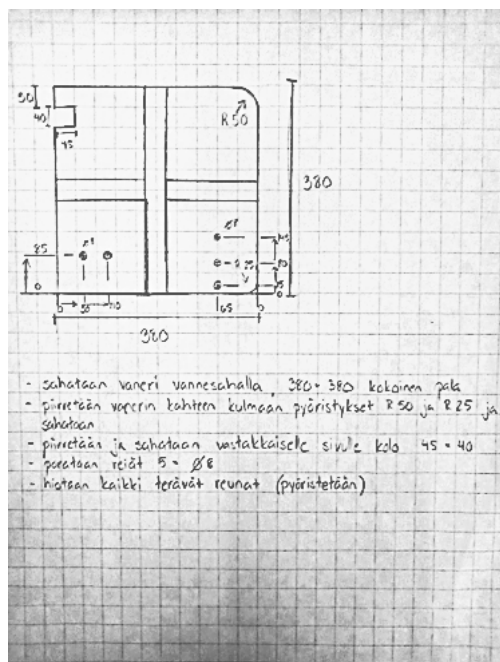 50
40
45
R 50
380
Ø8
Ø8
85
0
0
110
65
0
380
- sahataan vaneri vannesahalla, 380 * 380 kokoinen pala
- piirretään vanerin kahteen kulmaan pyöristykset R 50 ja R 25 ja
sahataan
- piirretään ja sahataan vastakkaiselle sivulle kolo 45 * 40
- porataan reiät 5 * Ø8
- hiotaan kaikki terävät reunat (pyöristetään)